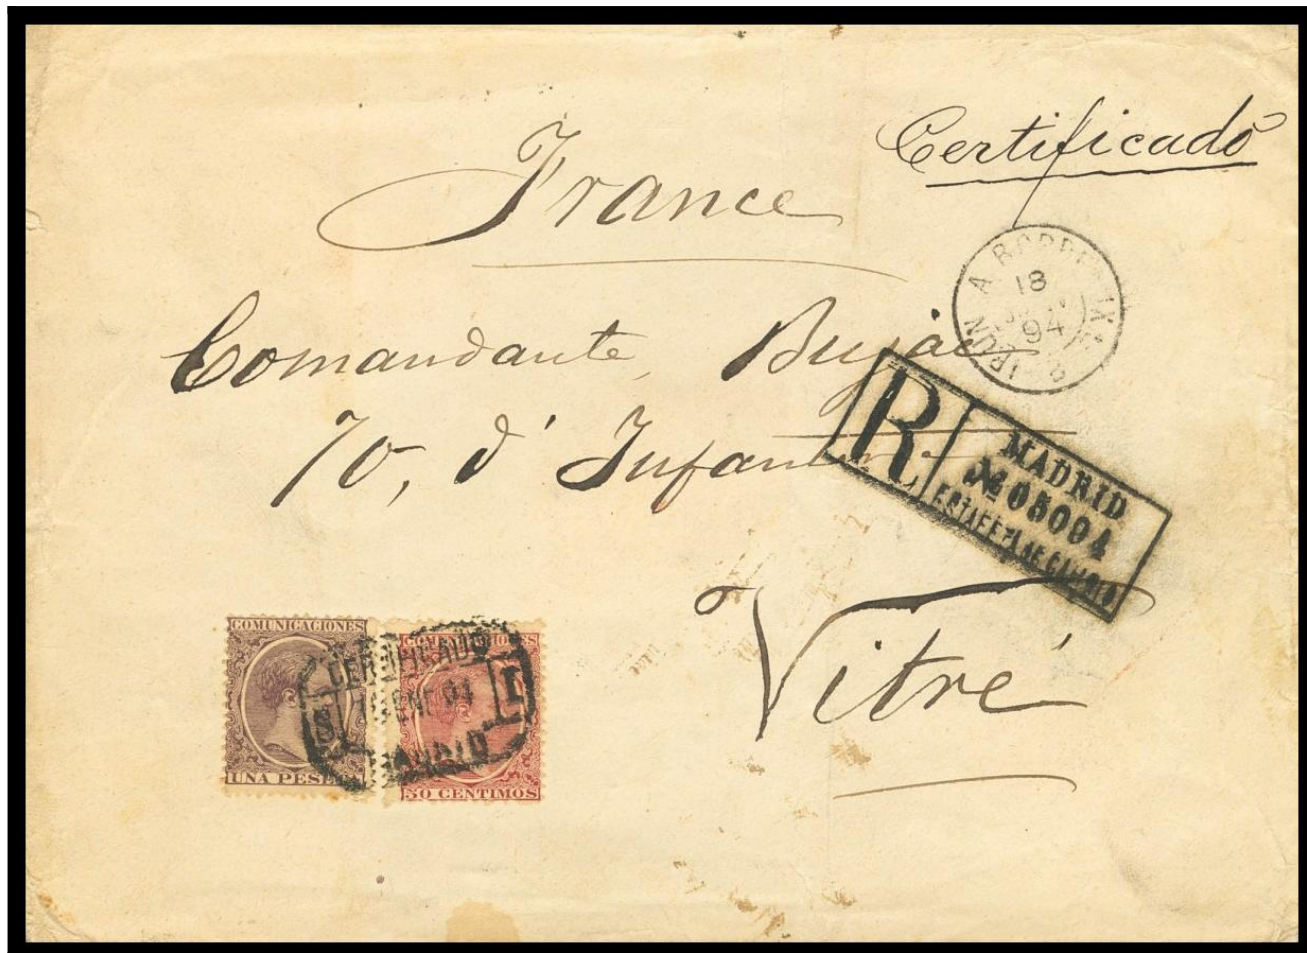 Certificado
France
A BORDEAUX
18
94
IRUN
Comandante, Bujac
70, d' Infanterie
R MADRID
№ 05094
ESTAFETA DE CAMBIO
Vitré
COMUNICACIONES
UNA PESETA
COMUNICACIONES
50 CENTIMOS
CERTIFICADO
ENE 94
MADRID
1